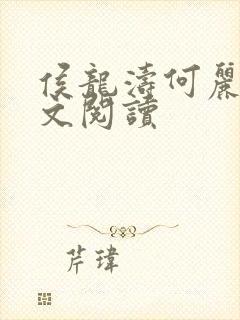 侯龍濤何麗
文閱讀
芹瑋